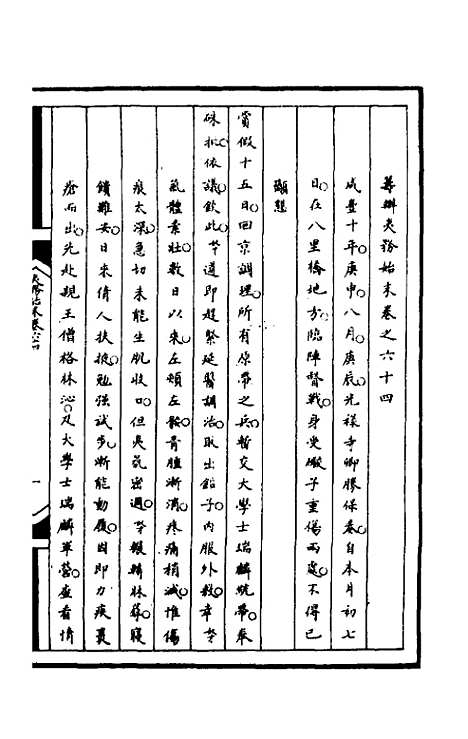 籌辦夷務始末卷之六十四
咸豐十年庚申八月庚辰光祿寺卿勝保奏自本月初七
日在八里橋地方臨陣督戰身受礮子重傷兩處不得已
顒懇
賞假十五日回京調理所有原帶之兵暫交大學士瑞麟統帶奉
硃批依議欽此等遵即趕緊延醫調治取出鉛子內服外敷幸
氣體素壯數日以來左頰左骽骨腫漸消疼痛稍減惟傷
痕太深急切未能生肌收口但夷氛密邇輾轉牀蓐寢
饋難安日來倩人扶掖勉強試步漸能動履因即力疾裹
瘡而出先赴親王僧格林沁及大學士瑞麟軍營查看情